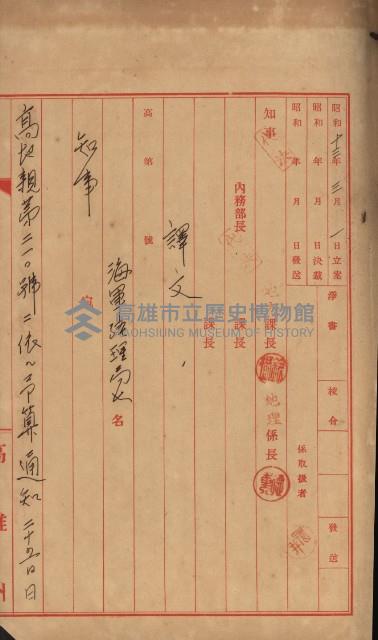 昭和十三年三月一日立案
昭和 年 月 日決裁
昭和 年 月 日發送
淨書
校合
發送
係取扱者
知事
內務部長
地理課長
課長
課長
地理係長
譯文
高 第 號
海軍經理局長
名
宛
知事
高地親第二一〇號ニ依ル予算通知二十五日
高雄州
高雄市立歷史博物館
KAOHSIUNG MUSEUM OF HISTORY